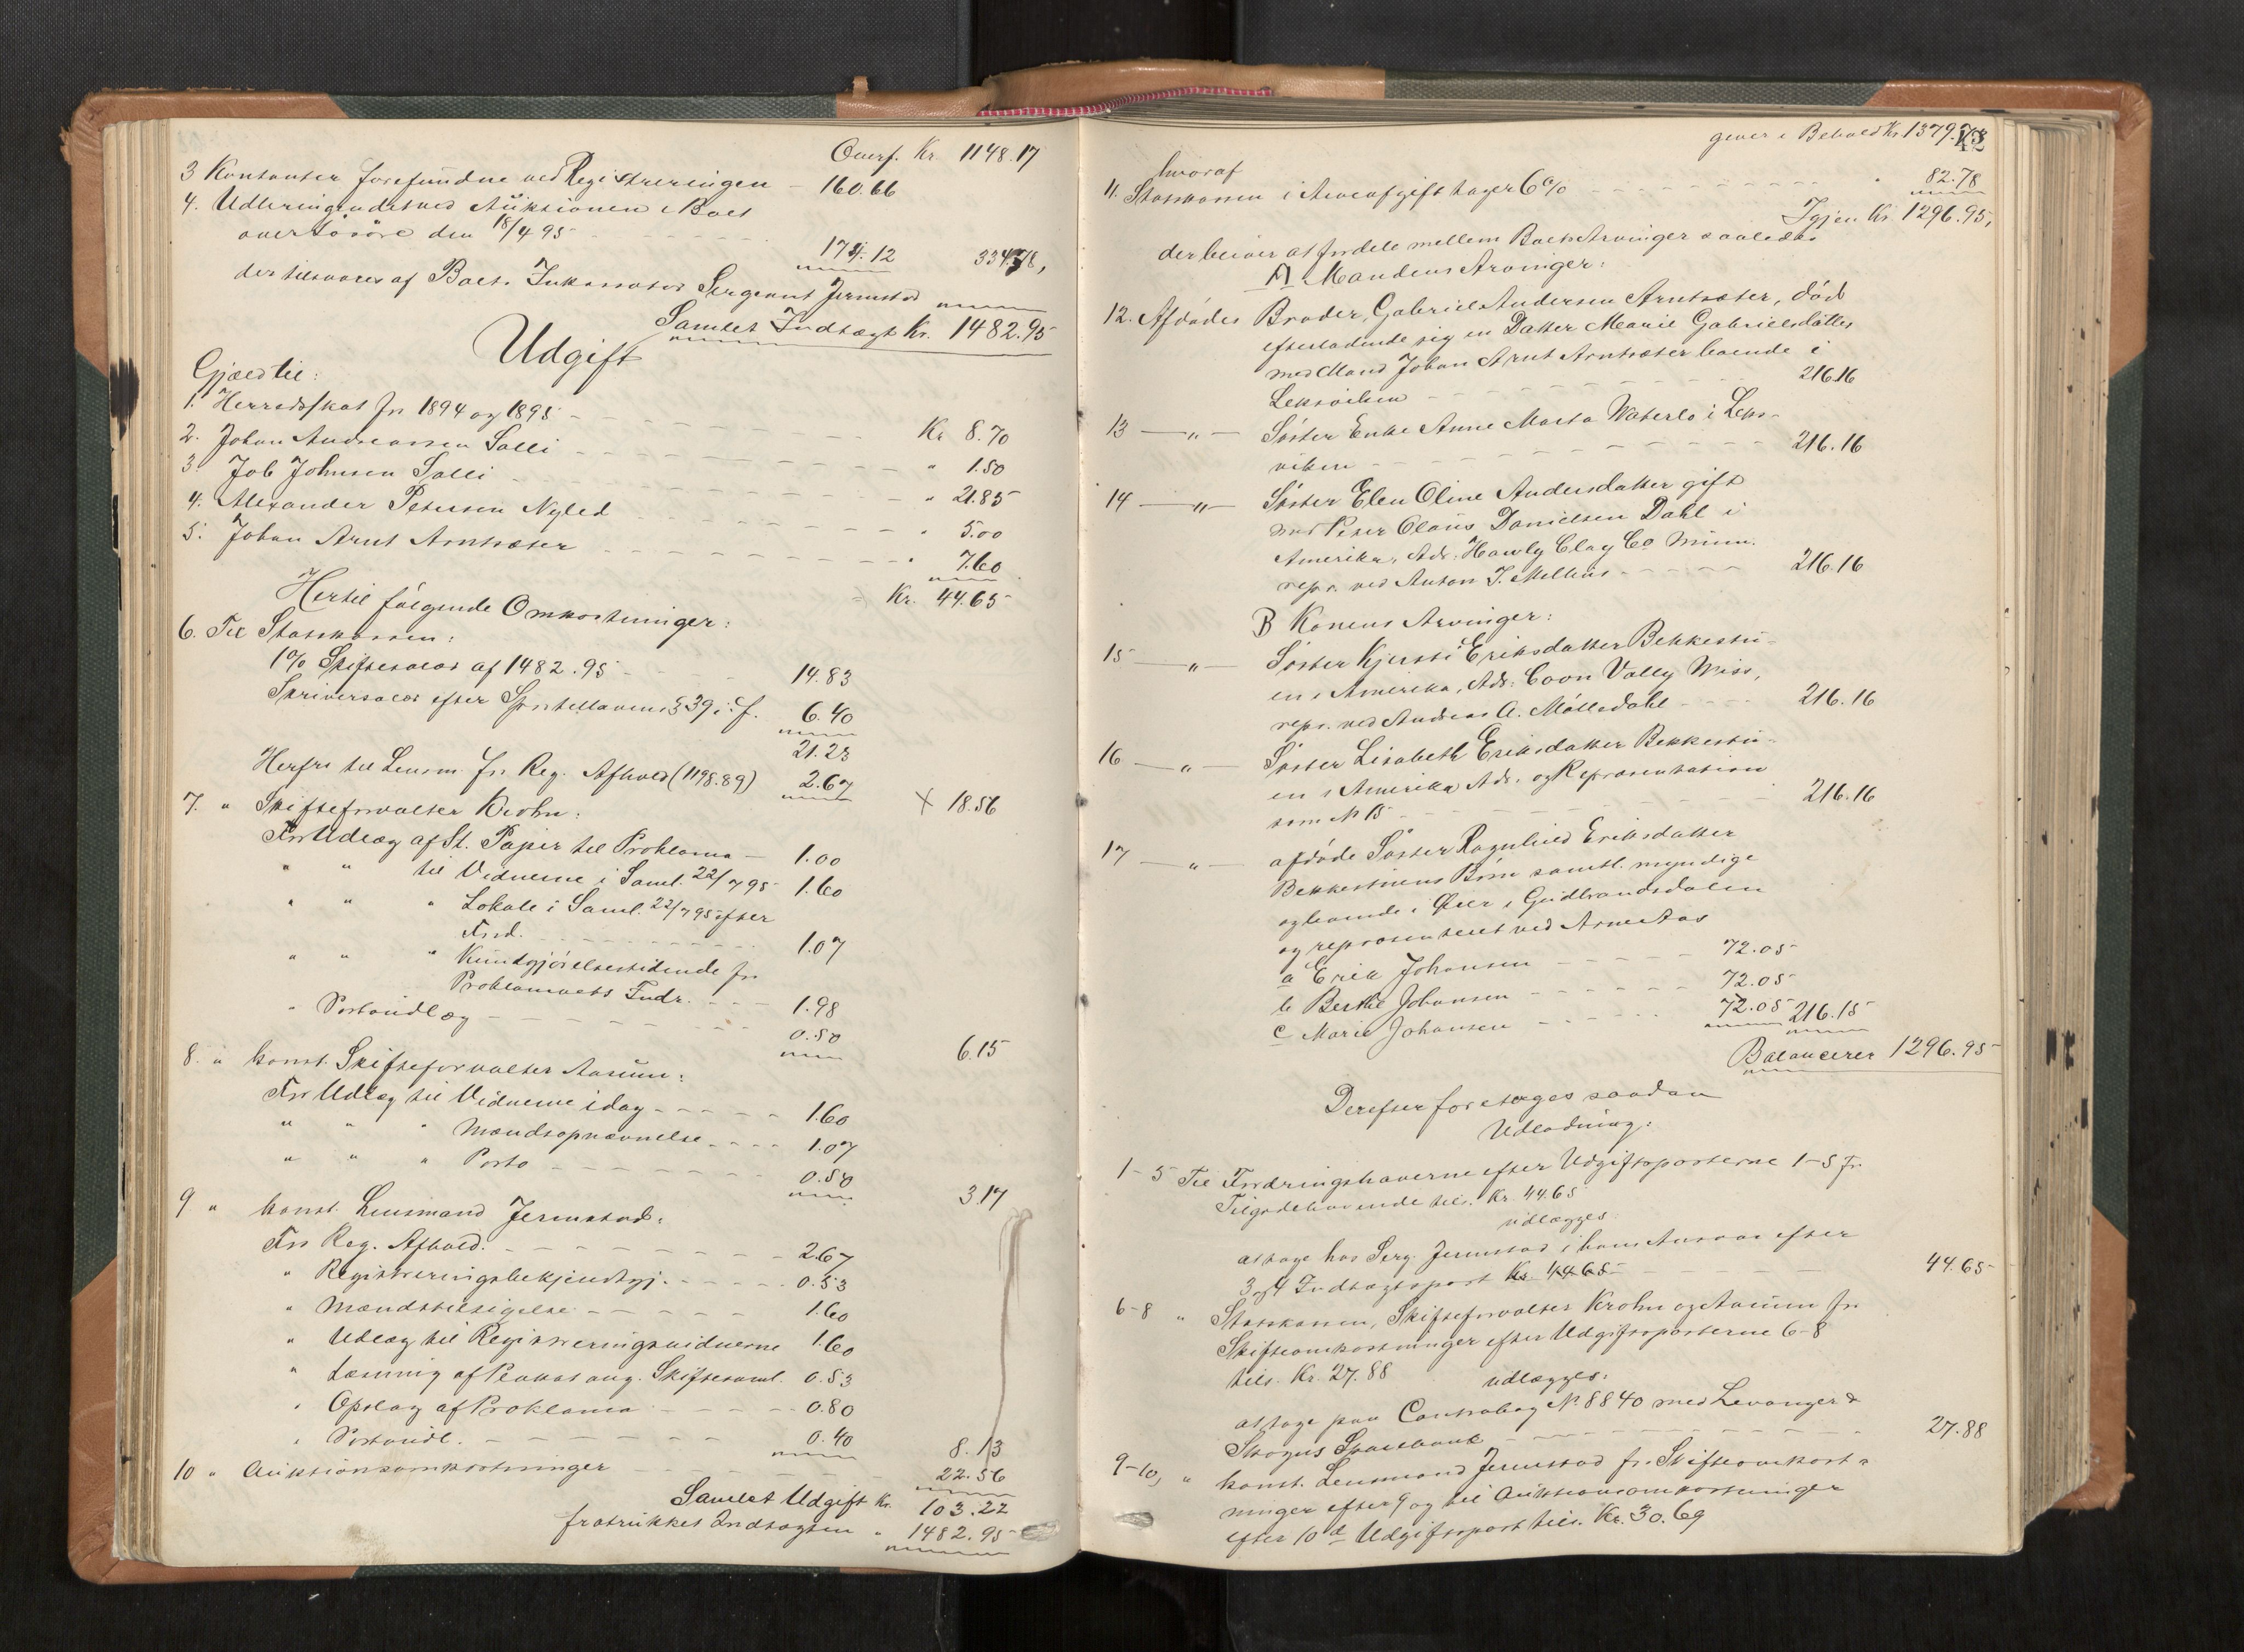 Overf. Kr. 1148.17
3 Kontanter forefundne ved Registreringen – 160.66
4. Udbringendet ved Auktionen i Boet
over Løsøre den 18/4 95 – 174.12 334.78,
der tilsvares af Boets Inkassator Sergeant Jermstad
Samlet Indtægt Kr. 1482.95
Udgift
Gjæld til:
1. Herredsskat for 1894 og 1895 – Kr 8.70
2. Johan Andreassen Salli – " 1.50
3. Job Johnsen Salli – " 21.85
4. Alexander Petersen Nyled – " 5.00
5. Johan Arnt Arntsæter – " 7.60
Kr. 44.65
Hertil følgende Omkostninger:
6. Til Statskassen:
1% Skiftesalær af 1482.95 – 14.83
Skriversalær efter Sportellovens § 39 i. f. 6.40
21.23
Herfra til Lensm. for Reg. Afhold (1198.89) 2.67 × 18.56
7. " Skifteforvalter Krohn:
For Udlæg af St. Papir til Proklama – 1.00
" " til Vidnerne i Saml. 22/7 95 – 1.60
" " " Lokale i Saml. 22/7 95 efter
Ford. – 1.07
" " " Kundgjørelsestidende for
Proklamaets Indr. – 1.98
" Portoudlæg – 0.50 6.15
8. " konst. Skifteforvalter Aasum:
For Udlæg til Vidnerne idag – 1.60
" " " Mandsopnævnelse – 1.07
" " " Porto – 0.50 3.17
9 " konst. Lensmand Jermstad:
For Reg. Afhold. – 2.67
" Registreringsbekjendtgj. – 0.53
" Mændstilsigelse – 1.60
" Udlæg til Registreringsvidnerne 1.60
" Læsning af Plakat ang. Skiftesaml. 0.53
" Opslag af Proklama – 0.80
" Portoudl. – 0.40 8.13
10 " Auktionsomkostninger – 22.56
Samlet Udgift Kr. 103.22
fratrukket Indtægten " 1482.95
giver i Behold Kr. 1379.73
42
hvoraf
11. Statskassen i Arveafgift tager 6% – " 82.78
Igjen Kr. 1296.95,
der bliver at fordele mellem Boets Arvinger saaledes
A Mandens Arvinger:
12. Afdødes Broder, Gabriel Andersen Arntsæter, død
efterladende sig en Datter Marie Gabrielsdatter
med Mand Johan Arnt Arntsæter boende i
Leksviken – 216.16
13 — " — Søster Enke Anne Marta Waterlo i Leks-
viken – 216.16
14 — " — Søster Elen Oline Andersdatter gift
med Peter Olaüs Danielsen Dahl i
Amerika, Adr. Hawly Clay Co. Minn.
repr. ved Anton J. Melhus – 216.16
B Konens Arvinger:
15 — " — Søster Kjersti Eriksdatter Bekkestu-
en i Amerika, Adr. Coon Vally Wiss,
repr. ved Andreas A. Mølledahl – 216.16
16 — " — Søster Lisabeth Eriksdatter Bekkestu-
en i Amerika Adr. og Repræsentation
som № 15 – 216.16
17 — " — afdøde Søster Ragnhild Eriksdatter
Bekkestuens Børn samtl. myndige
og boende i Øier i Gudbrandsdalen
og repræsenteret ved Arne Aas
a Erik Johansen – 72.05
b Berthe Johansen – 72.05
c Marie Johansen – 72.05 216.15
Balancerer 1296.95
Derefter foretages saadan
Udlodning:
1-5 Til Fordringshaverne efter Udgiftsposterne 1-5 for
Tilgodehavende tils. Kr. 44.65
udlægges
at tage hos Serg. Jermstad i hans Ansvar efter
3 og 4 Indtægtspost Kr. 44.65 – 44.65
6-8 " Statskassen, Skifteforvalter Krohn og Aasum for
Skifteomkostninger efter Udgiftsposterne 6-8
tils. Kr. 27.88 udlægges:
at tage paa Contrabog № 8840 med Levanger &
Skogns Sparebank – 27.88
9-10, " konst. Lensmand Jermstad for Skifteomkost-
ninger efter 9 og til Auktionsomkostninger
efter 10de Udgiftspost tils. Kr. 30.69